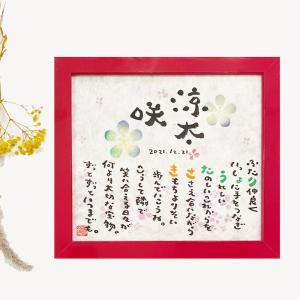 涼太
咲
2021.12.21
ふたり仲良く
りょうた
うれしい
たのしいこれからを
ささえ合いながら
きもちよりそい
歩んでいこうね。
こうして隣で
笑い合える日々が
何より大切な宝物。
ずっとずっといつまでも。